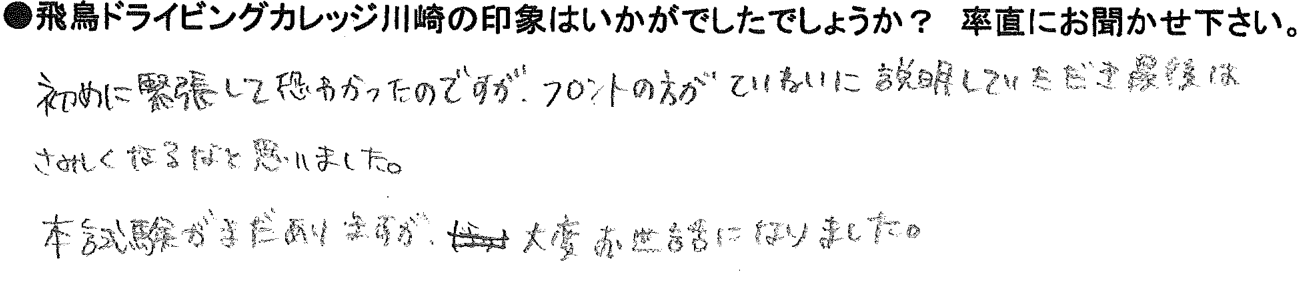 ●飛鳥ドライビングカレッジ川崎の印象はいかがでしたでしょうか？ 率直にお聞かせ下さい。
初めに緊張して恐わかったのですが、フロントの方がていねいに説明していただき最後は
さみしくなるなと思いました。
本試験がまだありますが、大変お世話になりました。